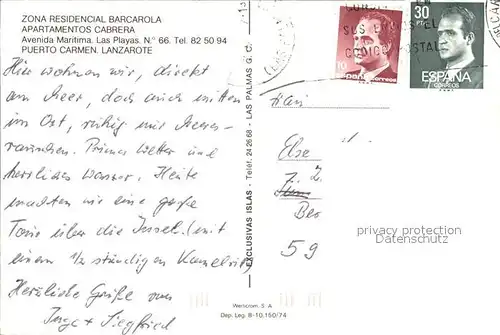 ZONA RESIDENCIAL BARCAROLA
APARTAMENTOS CABRERA
Avenida Marítima. Las Playas. N.º 66. Tel. 82 50 94
PUERTO CARMEN. LANZAROTE
Hier wohnen wir, direkt
am Meer, doch auch mitten
im Ort, ruhig mit Meeres-
rauschen. Prima Wetter und
herrliches Wasser. Heute
machten wir eine große
Tour über die Insel! (mit
einem 1/2 ständigen Kamelritt)
Herzliche Grüße von
Inge + Siegfried
EXCLUSIVAS ISLAS - Teléf. 24 26 68 - LAS PALMAS G. C.
SU
CODIGO POSTAL
10
ESPAÑA correos
30
PTA
ESPAÑA
CORREOS
Else
z. Z.
59
privacy protection
Datenschutz
Werticrom, S. A.
Dep. Leg. B-10.150/74